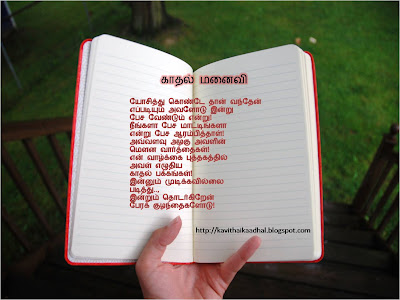 காதல் மனைவி
யோசித்து கொண்டே தான் வந்தேன்
எப்படியும் அவளோடு இன்று
பேச வேண்டும் என்று!
நீங்களா பேச மாட்டிங்களா
என்று பேச ஆரம்பித்தாள்!
அவ்வளவு அழகு அவளின்
மௌன வார்த்தைகள்!
என் வாழ்க்கை புத்தகத்தில்
அவள் எழுதிய
காதல் பக்கங்கள்!
இன்னும் முடிக்கவில்லை
படித்து...
இன்றும் தொடர்கிறேன்
பேரக் குழந்தைகளோடு!
http://kavithaikaadhal.blogspot.com